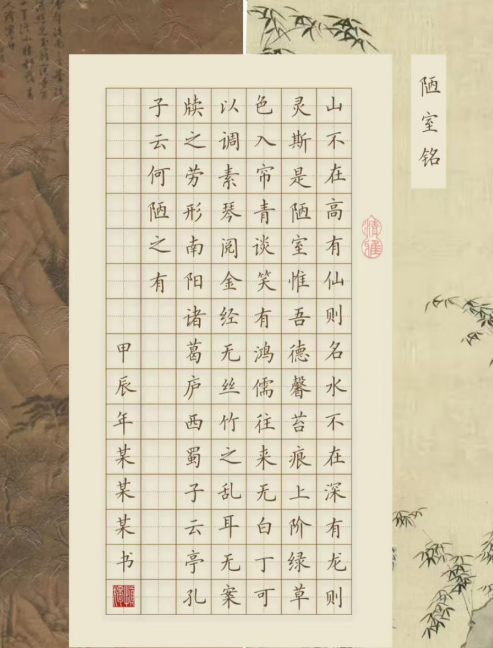 陋室铭
山不在高有仙则名水不在深有龙则
灵斯是陋室惟吾德馨苔痕上阶绿草
色入帘青谈笑有鸿儒往来无白丁可
以调素琴阅金经无丝竹之乱耳无案
牍之劳形南阳诸葛庐西蜀子云亭孔
子云何陋之有
甲辰年某某某书